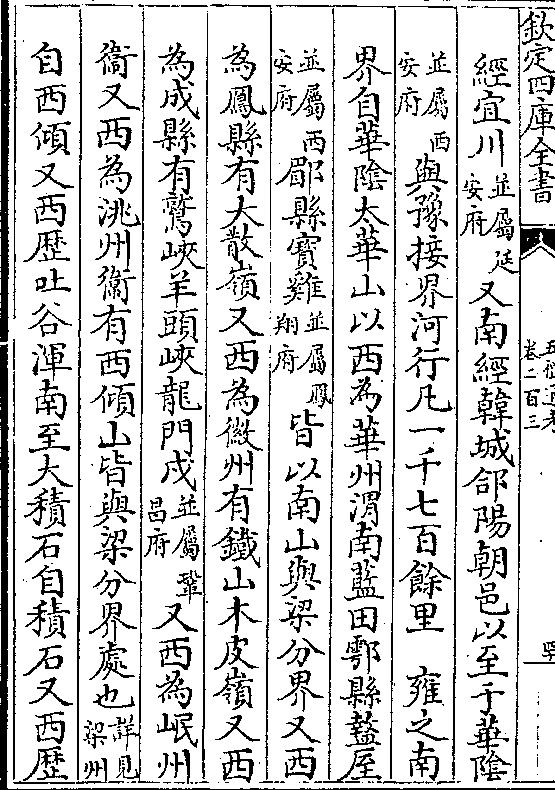 欽定四庫全書
卷二百三
經宜川並屬延安府又南經韓城郃陽朝邑以至于華陰
並屬西安府與豫接界河行凡一千七百餘里　雍之南
界自華陰太華山以西為華州渭南藍田鄠縣盩厔
並屬西安府郿縣寶雞並屬鳳翔府皆以南山與梁分界又西
為鳳縣有大散嶺又西為徽州有鐵山木皮嶺又西
為成縣有鷲峽羊頭峽龍門戍並屬鞏昌府又西為岷州
衞又西為洮州衞有西傾山皆與梁分界處也詳見梁州
自西傾又西歴吐谷渾南至大積石自積石又西歴